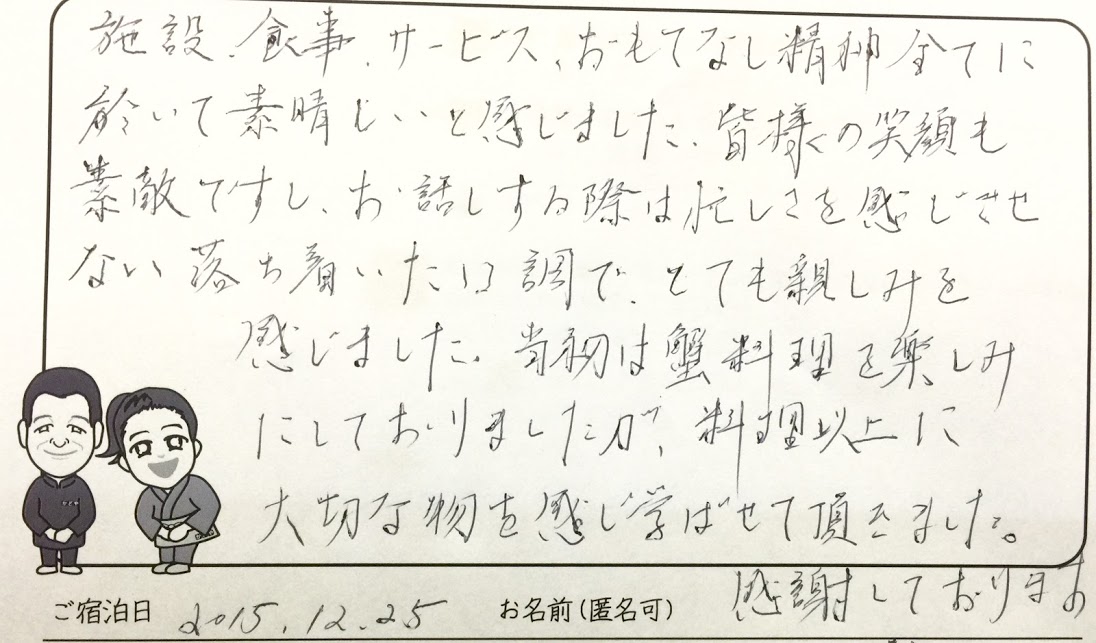 施設、食事、サービス、おもてなし精神全てに
於いて素晴しいと感じました、皆様の笑顔も
素敵ですし、お話しする際は忙しさを感じさせ
ない落ち着いた口調で、とても親しみを
感じました。当初は蟹料理を楽しみ
にしておりましたが、料理以上に
大切な物を感じ学ばせて頂きました。
感謝しております
ご宿泊日 2015.12.25 お名前(匿名可)